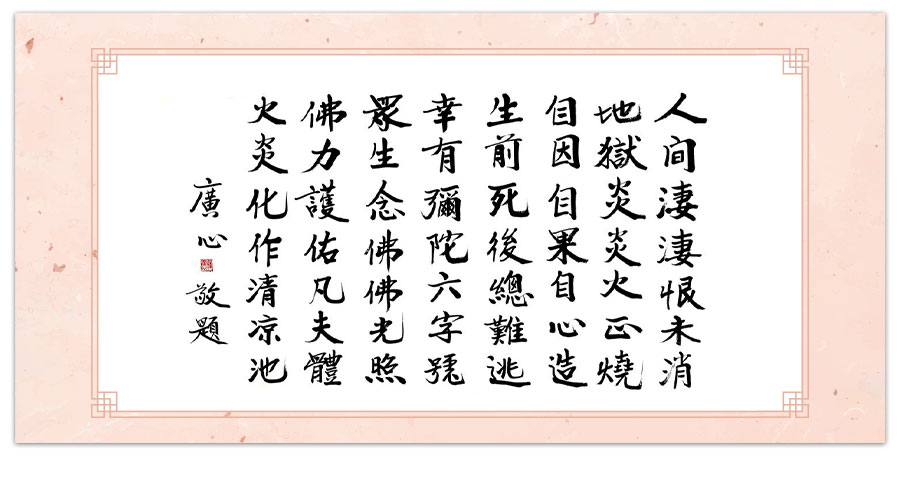 人間淒淒恨未消
地獄炎炎火正燒
自因自果自心造
生前死後總難逃
幸有彌陀六字號
眾生念佛佛光照
佛力護佑凡夫體
火炎化作清凉池
廣心
敬題